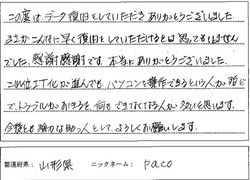 この度は、データ復旧をしていただき ありがとうございました。
まさか こんなに 早く 復旧をしていただけるとは 思ってもいません
でした。感謝感謝です。本当に ありがとうございました。
これ位 IT化が進んでも パソコンを 操作できるという人が 殆ど
で、トラブルがおきると 何も できなくなる人が 多いと思います。
今後とも 強力な助っ人として、よろしくお願いします。
都道府県： 山形県 ニックネーム： paco